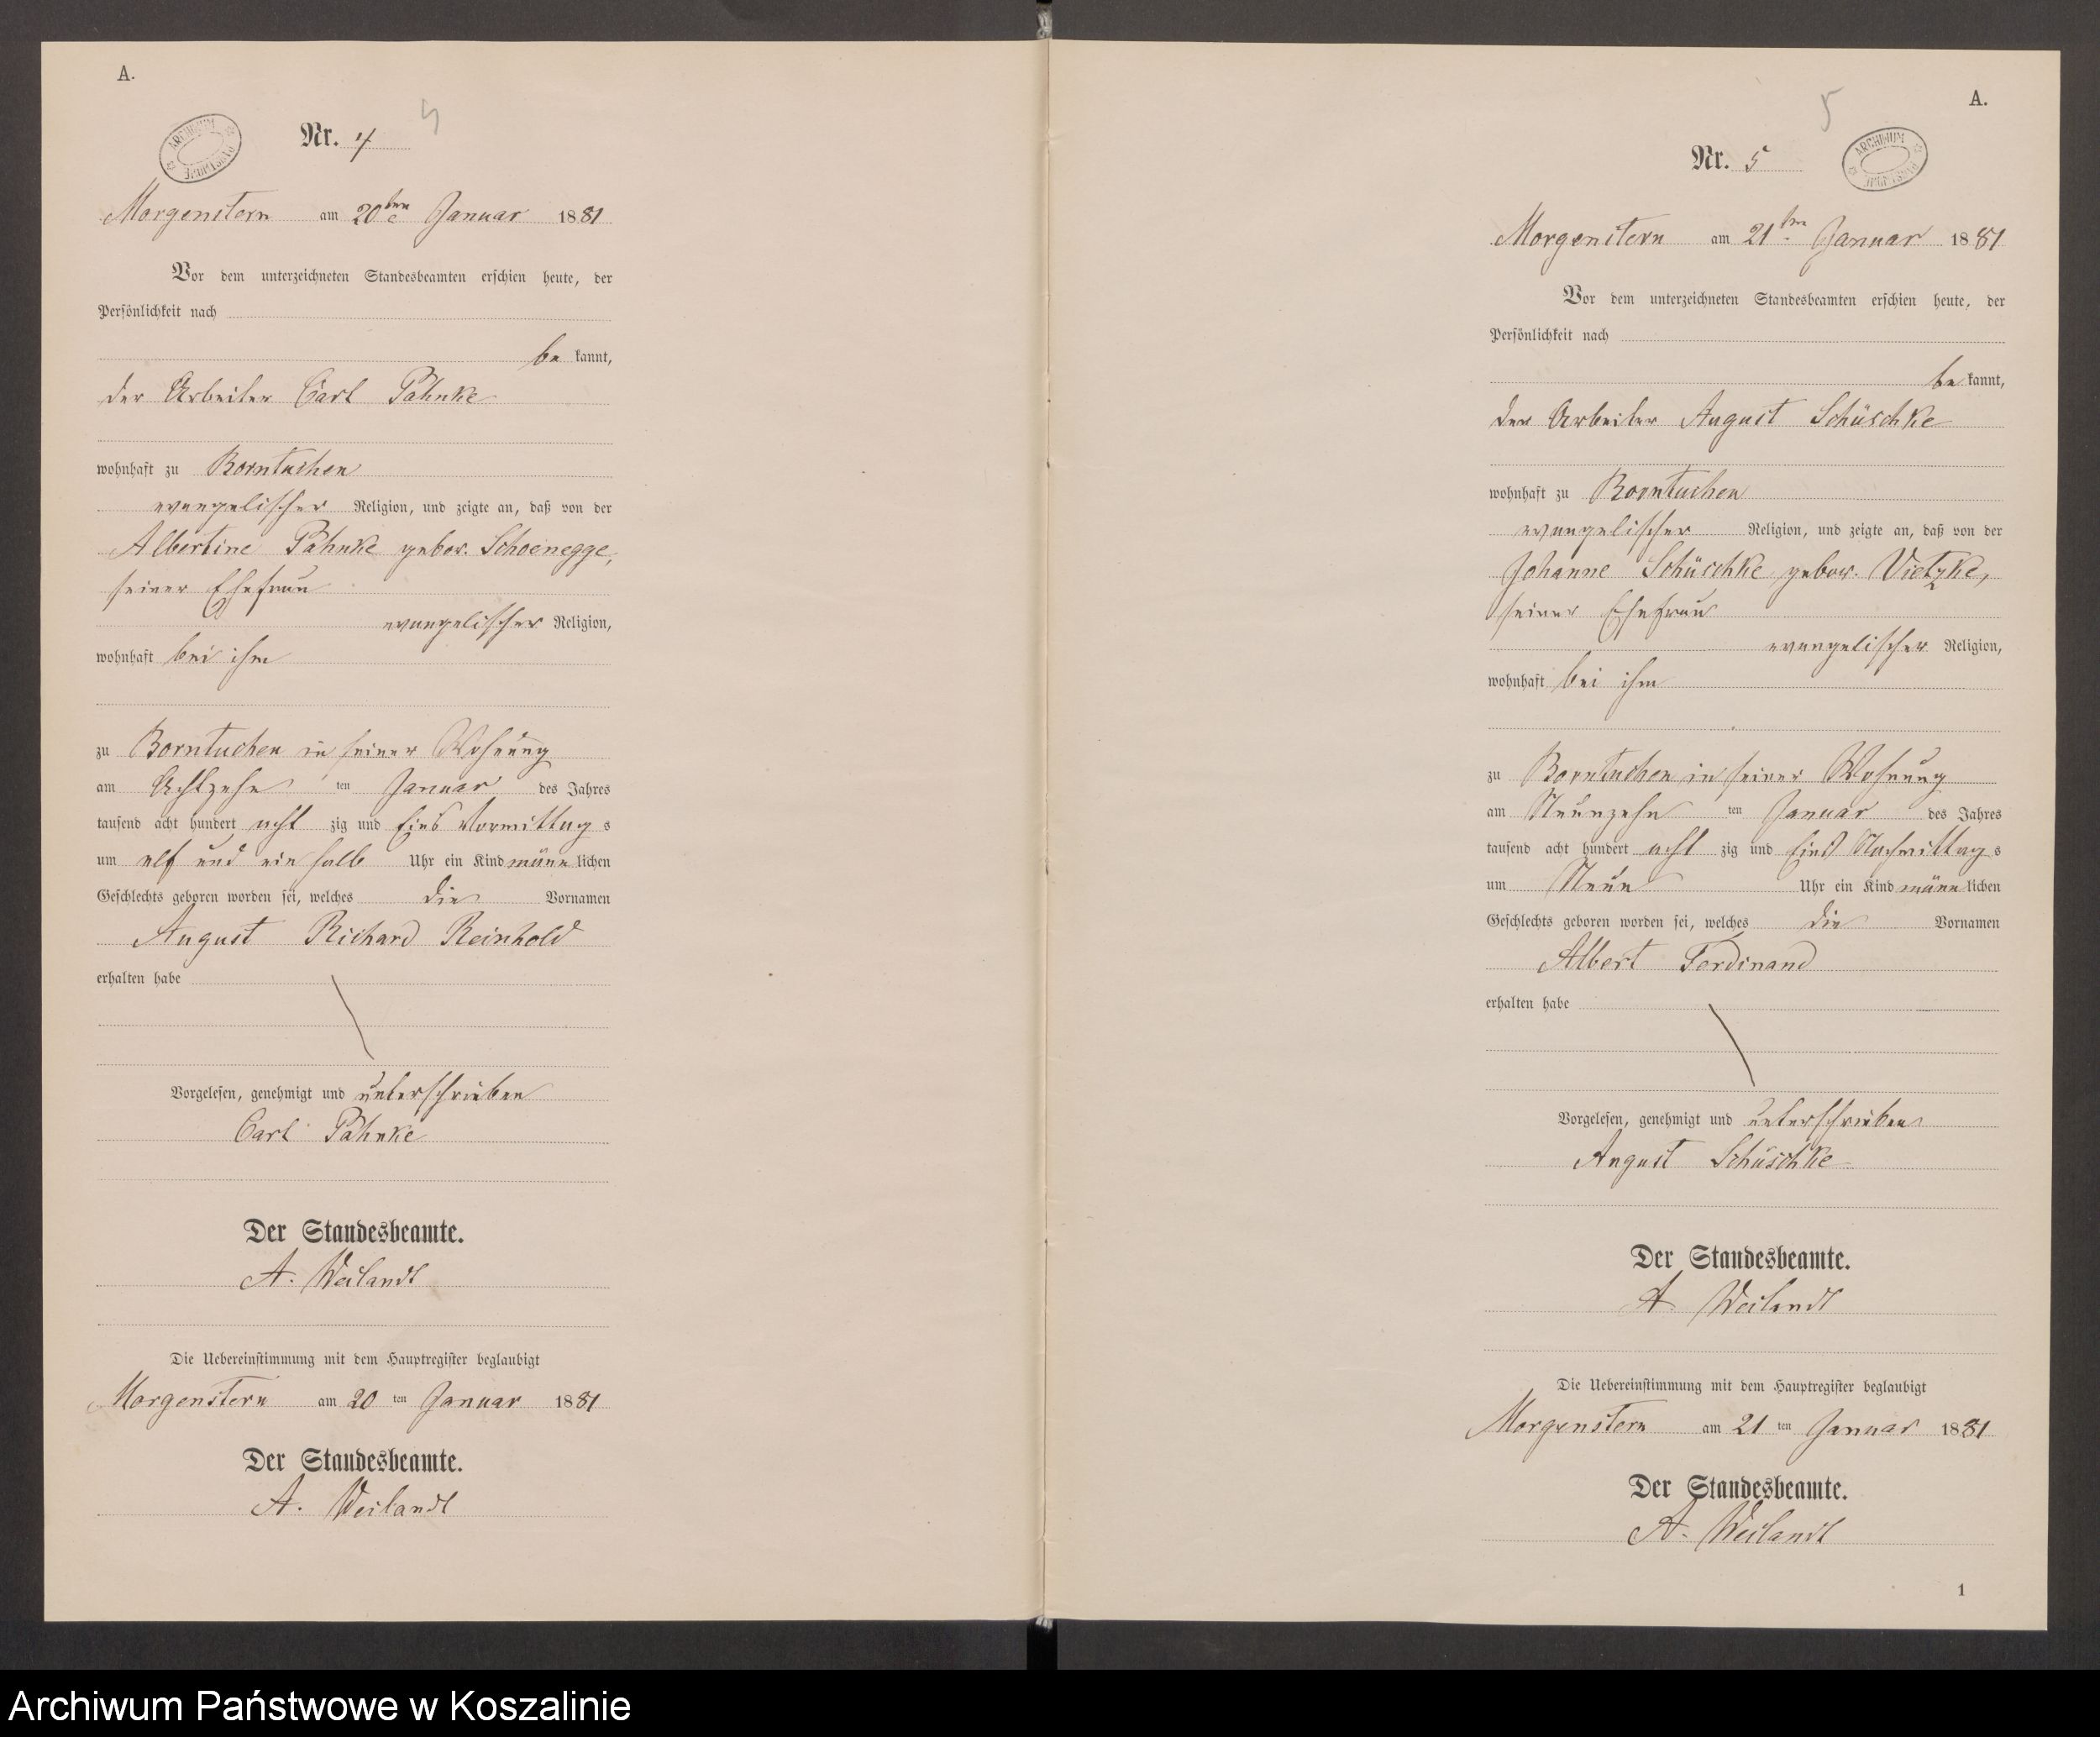 A.
4
Nr. 4
ARCHIWUM PAŃSTWOWE
Morgenstern am 20ten Januar 1881
Vor dem unterzeichneten Standesbeamten erschien heute, der
Persönlichkeit nach
be kannt,
der Arbeiter Carl Pahnke
wohnhaft zu Borntuchen
evangelischer Religion, und zeigte an, daß von der
Albertine Pahnke gebor. Schoenegge,
seiner Ehefrau
evangelischer Religion,
wohnhaft bei ihm
zu Borntuchen in seiner Wohnung
am Achtzehn ten Januar des Jahres
tausend acht hundert acht zig und Eins Vormittag s
um elf und ein halb Uhr ein Kind männ lichen
Geschlechts geboren worden sei, welches die Vornamen
August Richard Reinhold
erhalten habe
Vorgelesen, genehmigt und unterschrieben
Carl Pahnke
Der Standesbeamte.
A. Weilandt
Die Uebereinstimmung mit dem Hauptregister beglaubigt
Morgenstern am 20 ten Januar 1881
Der Standesbeamte.
A. Weilandt
A.
5
Nr. 5
ARCHIWUM PAŃSTWOWE
Morgenstern am 21ten Januar 1881
Vor dem unterzeichneten Standesbeamten erschien heute, der
Persönlichkeit nach
be kannt,
der Arbeiter August Schüschke
wohnhaft zu Borntuchen
evangelischer Religion, und zeigte an, daß von der
Johanne Schüschke gebor. Vietzke,
seiner Ehefrau
evangelischer Religion,
wohnhaft bei ihm
zu Borntuchen in seiner Wohnung
am Neunzehn ten Januar des Jahres
tausend acht hundert acht zig und Eins Nachmittag s
um Neun Uhr ein Kind männ lichen
Geschlechts geboren worden sei, welches die Vornamen
Albert Ferdinand
erhalten habe
Vorgelesen, genehmigt und unterschrieben
August Schüschke
Der Standesbeamte.
A. Weilandt
Die Uebereinstimmung mit dem Hauptregister beglaubigt
Morgenstern am 21 ten Januar 1881
Der Standesbeamte.
A. Weilandt
1
Archiwum Państwowe w Koszalinie